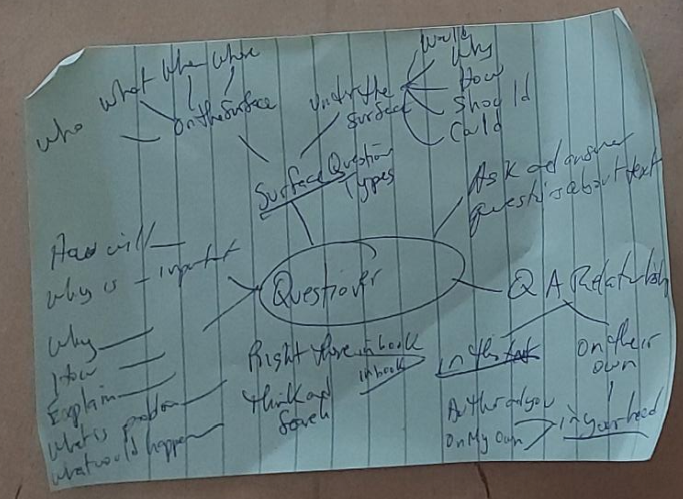 who what when where
on the surface
under the surface
would
why
How
Should
Could
Surface Question
Types
Ask and answer
questions about text
Questioner
How will
why is - important
Why
How
Explain
what is problem
what would happen
Q A Relationship
Right there in book
Think and in book
Search
in this text
On their
own
Author and you
On My Own
in your head